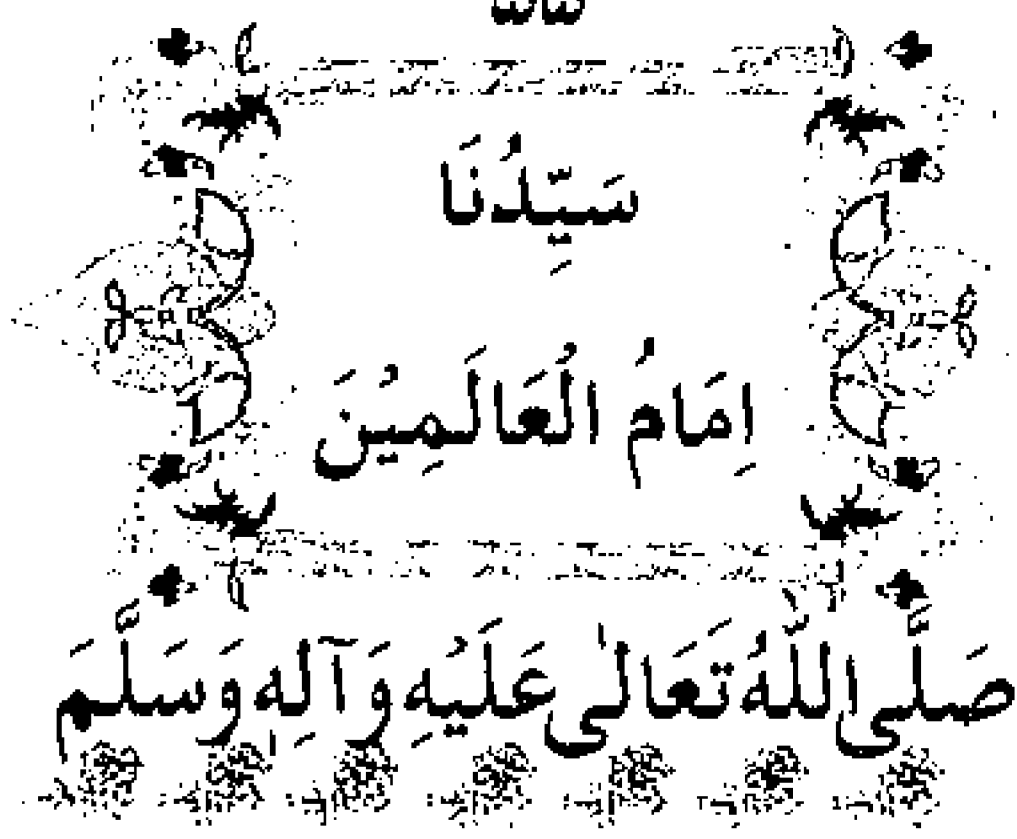 سَيِّدُنَا
اِمَامُ الْعَالَمِيْنَ
صَلَّى اللّٰهُ تَعَالٰى عَلَيْهِ وَآلِهِ وَسَلَّمَ